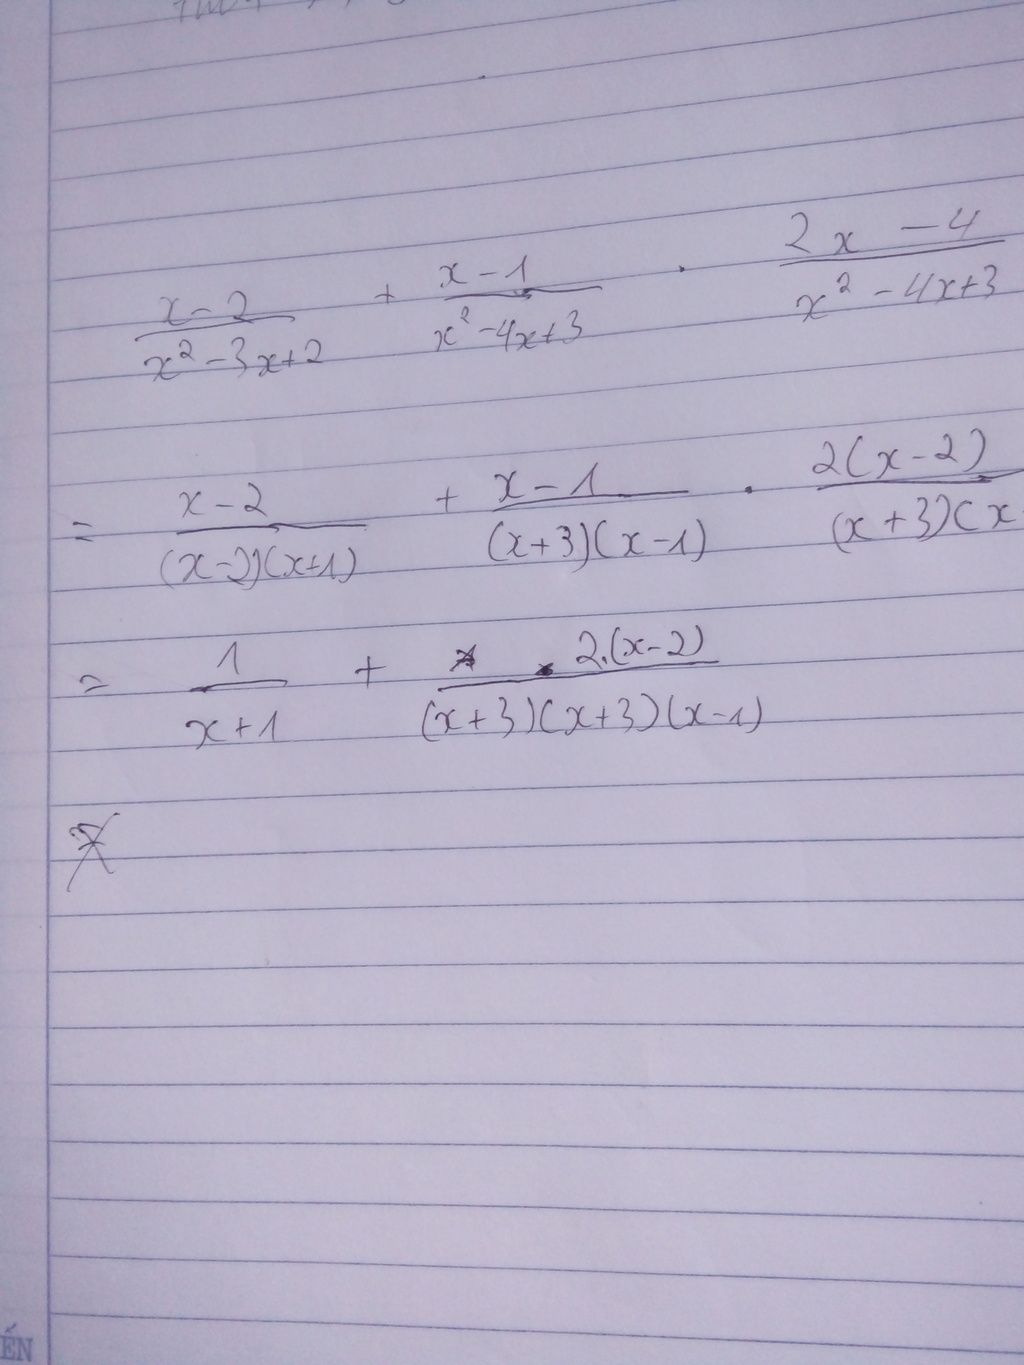 x-2/x²-3x+2 + x-1/x²-4x+3 . 2x-4/x²-4x+3
= x-2/(x-2)(x+1) + x-1/(x+3)(x-1) . 2(x-2)/(x+3)(x
= 1/x+1 + 2.(x-2)/(x+3)(x+3)(x-1)
ẾN